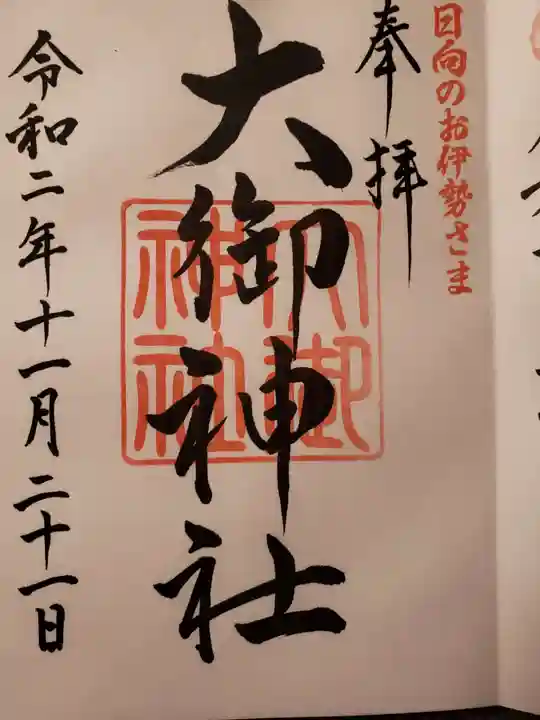 日向のお伊勢さま
奉拝
大御神社
大御
神社
令和二年十一月二十一日